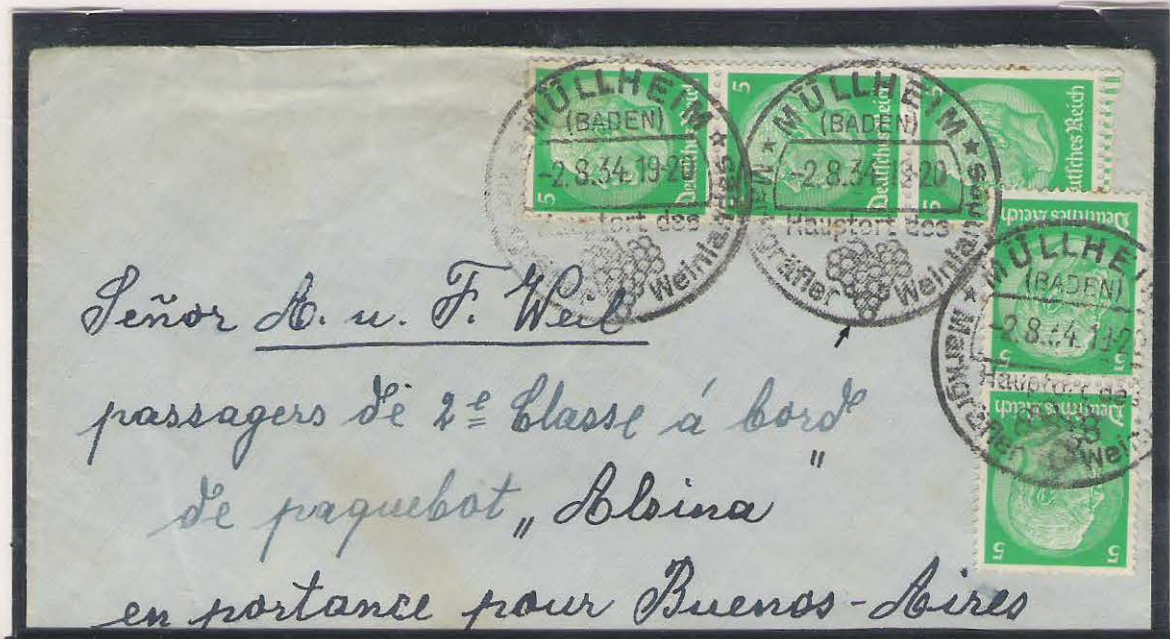 MÜLLHEIM
(BADEN)
-2.8.34.19-20
Hauptort des
Weinlandes
MÜLLHEIM
(BADEN)
-2.8.34. 19-20
Hauptort des
Markgräfler Weinlandes
MÜLLHEIM
(BADEN)
-2.8.34.19-2
Hauptort des
Markgräfler Wein
5 Deutsches Reich 5
5 Deutsches Reich 5
5 Deutsches Reich
Deutsches Reich 5 5
Deutsches Reich 5 5
Señor A. u. F. Weil
passagers de 2e Classe á bord
de paquebot „Alsina"
en portance pour Buenos-Aires